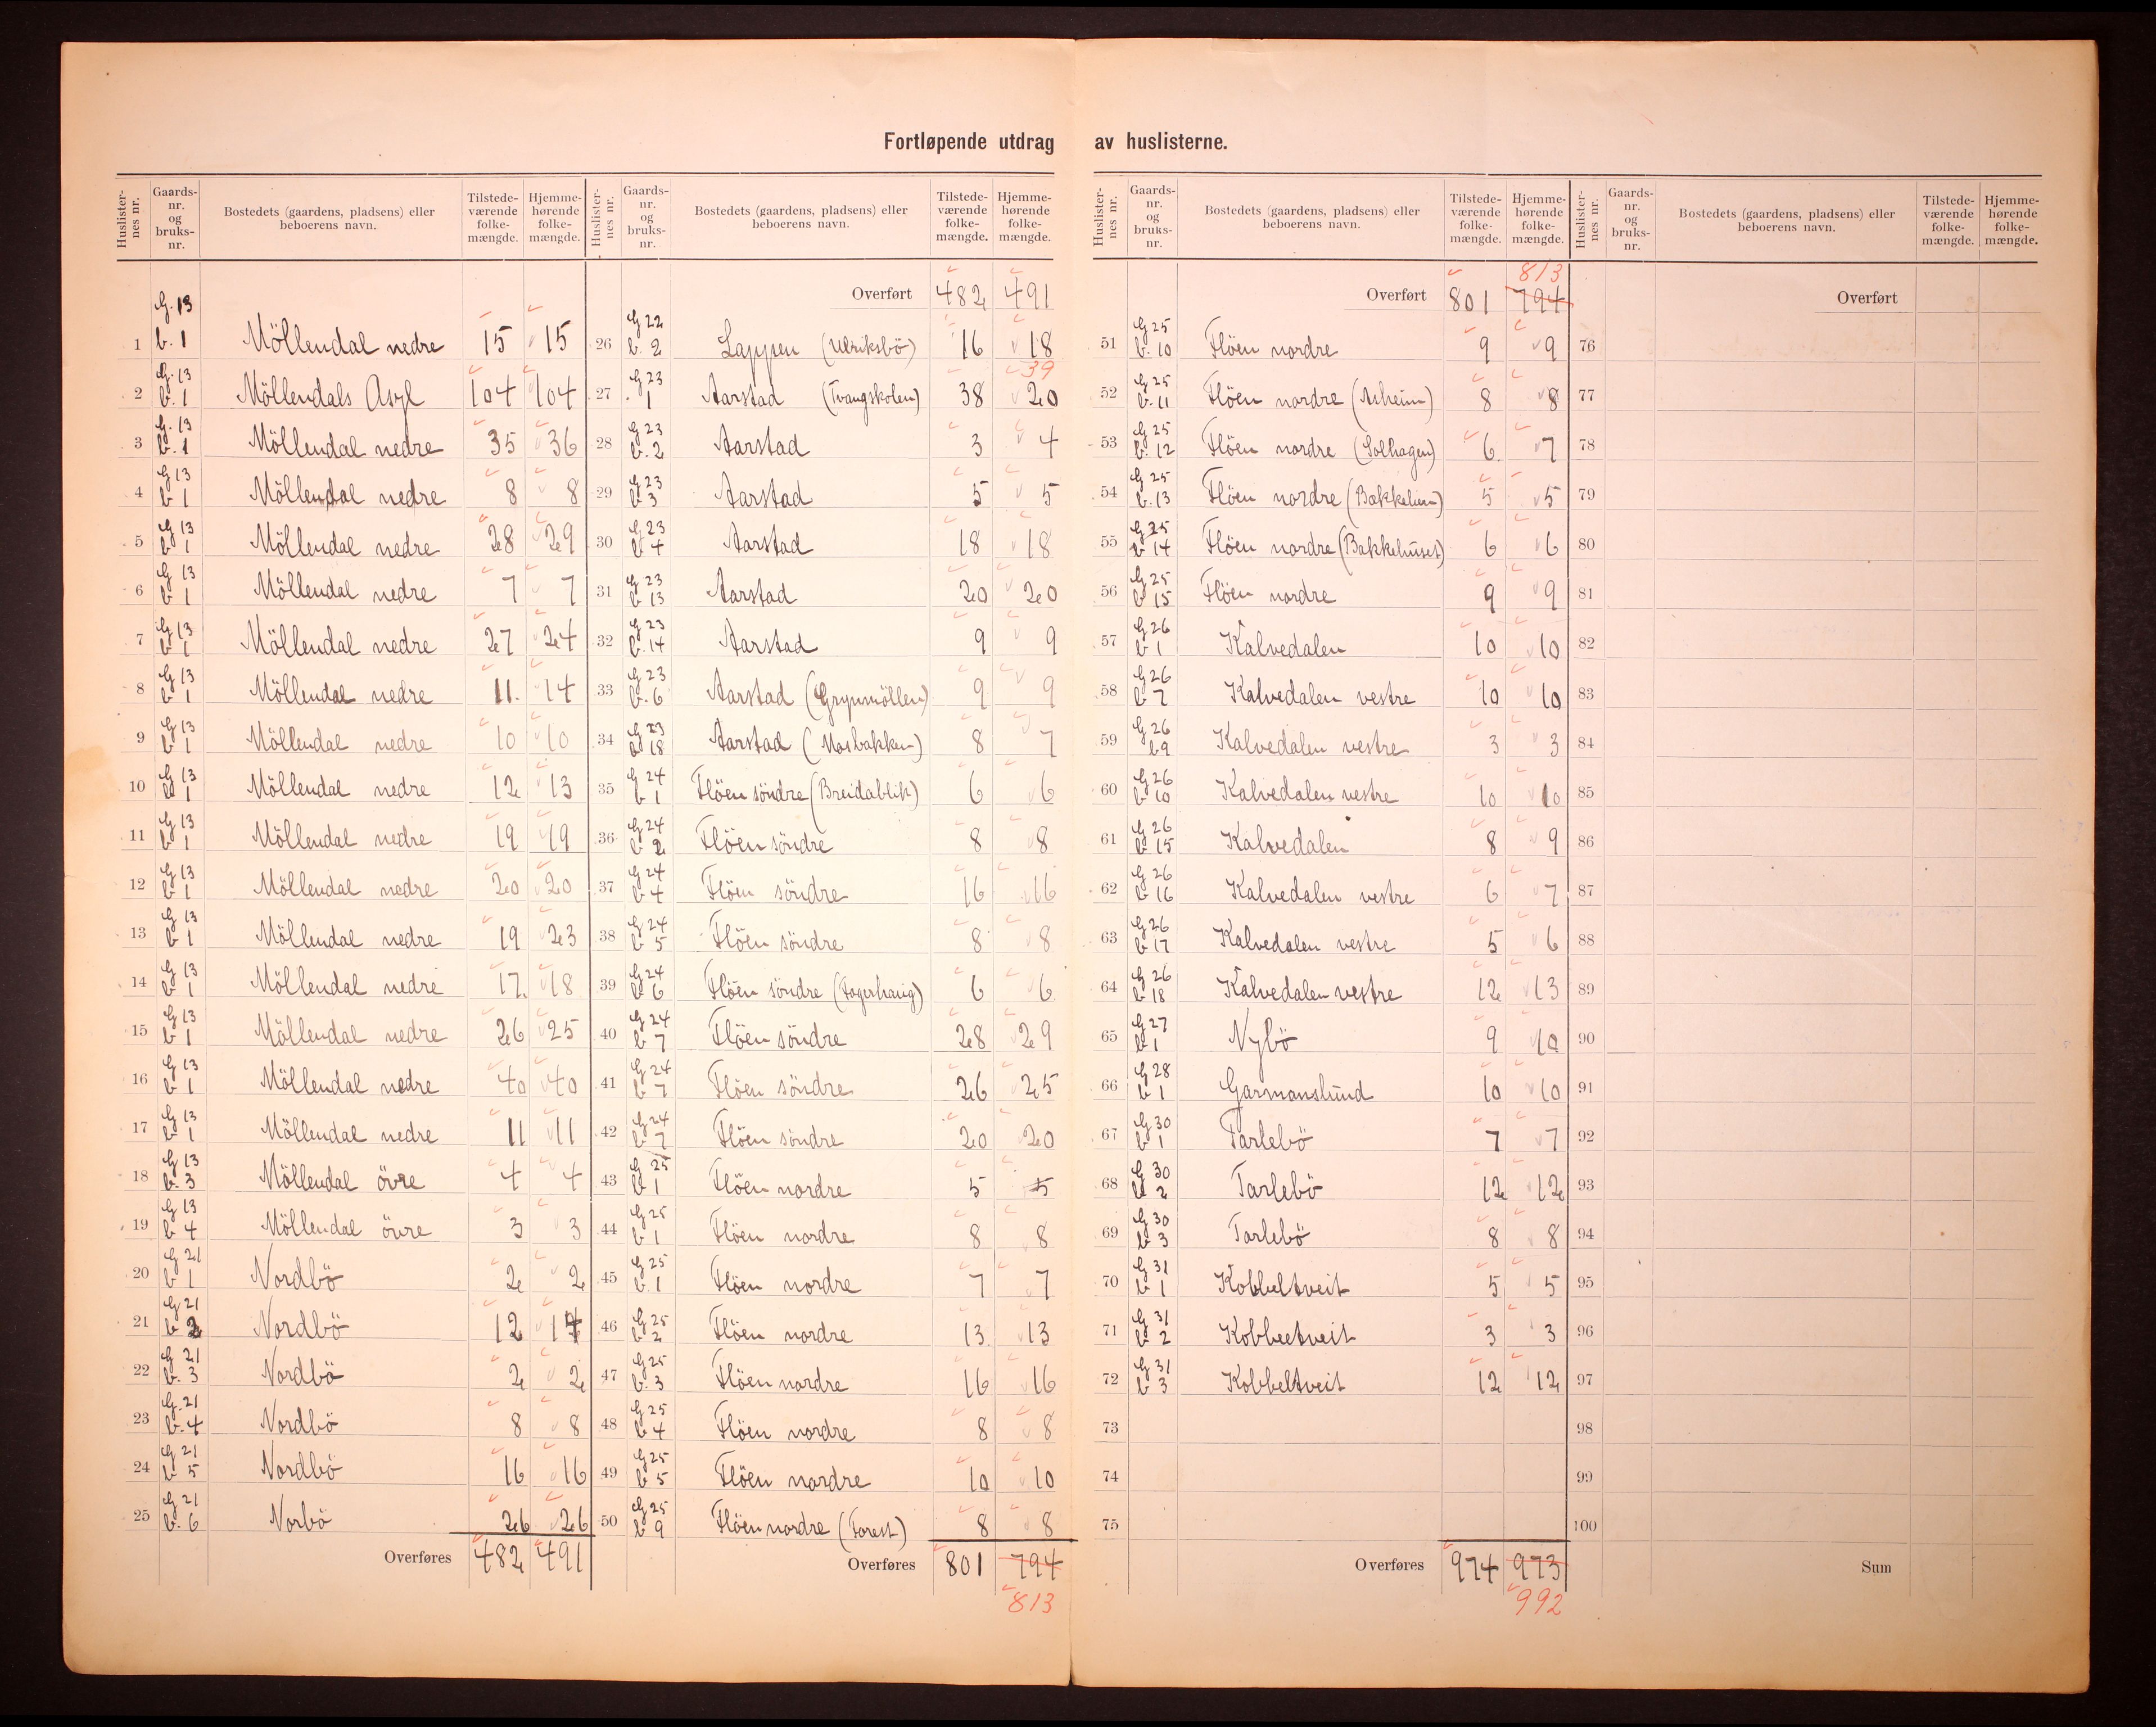 Fortløpende utdrag av huslisterne.
Huslisternes nr. Gaards-nr. og bruks-nr. Bostedets (gaardens, pladsens) eller beboerens navn. Tilstede-værende folke-mængde. Hjemme-hørende folke-mængde.
1 G. 13 b. 1 Möllendal nedre 15 15
2 G. 13 b. 1 Möllendals Asyl 104 104
3 G. 13 b. 1 Möllendal nedre 35 36
4 G 13 b 1 Möllendal nedre 8 8
5 G 13 b 1 Möllendal nedre 28 29
6 G 13 b 1 Möllendal nedre 7 7
7 G 13 b 1 Möllendal nedre 27 24
8 G 13 b 1 Möllendal nedre 11. 14
9 G 13 b 1 Möllendal nedre 10 10
10 G 13 b 1 Möllendal nedre 12 13
11 G 13 b 1 Möllendal nedre 19 19
12 G 13 b 1 Möllendal nedre 20 20
13 G 13 b 1 Möllendal nedre 19 23
14 G 13 b 1 Möllendal nedre 17. 18
15 G 13 b 1 Möllendal nedre 26 25
16 G 13 b 1 Möllendal nedre 40 40
17 G 13 b 1 Möllendal nedre 11 11
18 G 13 b. 3 Möllendal övre 4 4
19 G 13 b 4 Möllendal övre 3 3
20 G 21 b 1 Nordbö 2 2
21 G 21 b 2 Nordbö 12
22 G 21 b. 3 Nordbö 2 2
23 G. 21 b. 4 Nordbö 8 8
24 G 21 b 5 Nordbö 16 16
25 G 21 b. 6 Norbö 26 26
Overføres 482 491
Huslisternes nr. Gaards-nr. og bruks-nr. Bostedets (gaardens, pladsens) eller beboerens navn. Tilstede-værende folke-mængde. Hjemme-hørende folke-mængde.
Overført 482 491
26 G 22 b. 2 Lappen (Ulriksbö) 16 18
39
27 G 23 1 Aarstad (Tvangskolen) 38 20
28 G 23 b. 2 Aarstad 3 4
29 G 23 b 3 Aarstad 5 5
30 G 23 b 4 Aarstad 18 18
31 G 23 b 13 Aarstad 20 20
32 G 23 b. 14 Aarstad 9 9
33 G 23 b. 6 Aarstad (Grynmöllen) 9 9
34 G 23 b 18 Aarstad (Mosbakken) 8 7
35 G 24 b 1 Flöen söndre (Breidablik) 6 6
36 G 24 b 2 Flöen söndre 8 8
37 G 24 b 4 Flöen söndre 16 16
38 G 24 b 5 Flöen söndre 8 8
39 G 24 b 6 Flöen söndre (Fagerhaug) 6 6
40 G 24 b 7 Flöen söndre 28 29
41 G 24 b 7 Flöen söndre 26 25
42 G 24 b 7 Flöen söndre 20 20
43 G 25 b 1 Flöen nordre 5 5
44 G 25 b 1 Flöen nordre 8 8
45 G 25 b. 1 Flöen nordre 7 7
46 G 25 b 2 Flöen nordre 13. 13
47 G 25 b. 3 Flöen nordre 16 16
48 G 25 b 4 Flöen nordre 8 8
49 G 25 b 5 Flöen nordre 10 10
50 G 25 b 9 Flöen nordre (Forest) 8 8
Overføres 801 794
813
Huslisternes nr. Gaards-nr. og bruks-nr. Bostedets (gaardens, pladsens) eller beboerens navn. Tilstede-værende folke-mængde. Hjemme-hørende folke-mængde.
813
Overført 801 794
51 G 25 b. 10 Flöen nordre 9 9
52 G 25 b. 11 Flöen nordre (Asheim) 8 8
53 G 25 b. 12 Flöen nordre (Solhagen) 6. 7
54 G 25 b. 13 Flöen nordre (Bakkelien) 5 5
55 G 25 b 14 Flöen nordre (Bakkehuset) 6 6
56 G 25 b 15 Flöen nordre 9 9
57 G 26 b 1 Kalvedalen 10 10
58 G 26 b 7 Kalvedalen vestre 10 10
59 G 26 b 9 Kalvedalen vestre 3 3
60 G 26 b 10 Kalvedalen vestre 10 10
61 G 26 b 15 Kalvedalen 8 9
62 G 26 b 16 Kalvedalen vestre 6 7
63 G 26 b 17 Kalvedalen vestre 5 6
64 G 26 b 18 Kalvedalen vestre 12 13
65 G 27 b 1 Nybö 9 10
66 G 28 b 1 Garmanslund 10 10
67 G 30 b 1 Tarlebö 7 7
68 G 30 b 2 Tarlebö 12 12
69 G 30 b 3 Tarlebö 8 8
70 G 31 b 1 Kobbeltveit 5 5
71 G 31 b 2 Kobbeltveit 3 3
72 G 31 b 3 Kobbeltveit 12 12
73
74
75
Overføres 974 973
992
Huslisternes nr. Gaards-nr. og bruks-nr. Bostedets (gaardens, pladsens) eller beboerens navn. Tilstede-værende folke-mængde. Hjemme-hørende folke-mængde.
Overført
76
77
78
79
80
81
82
83
84
85
86
87
88
89
90
91
92
93
94
95
96
97
98
99
100
Sum